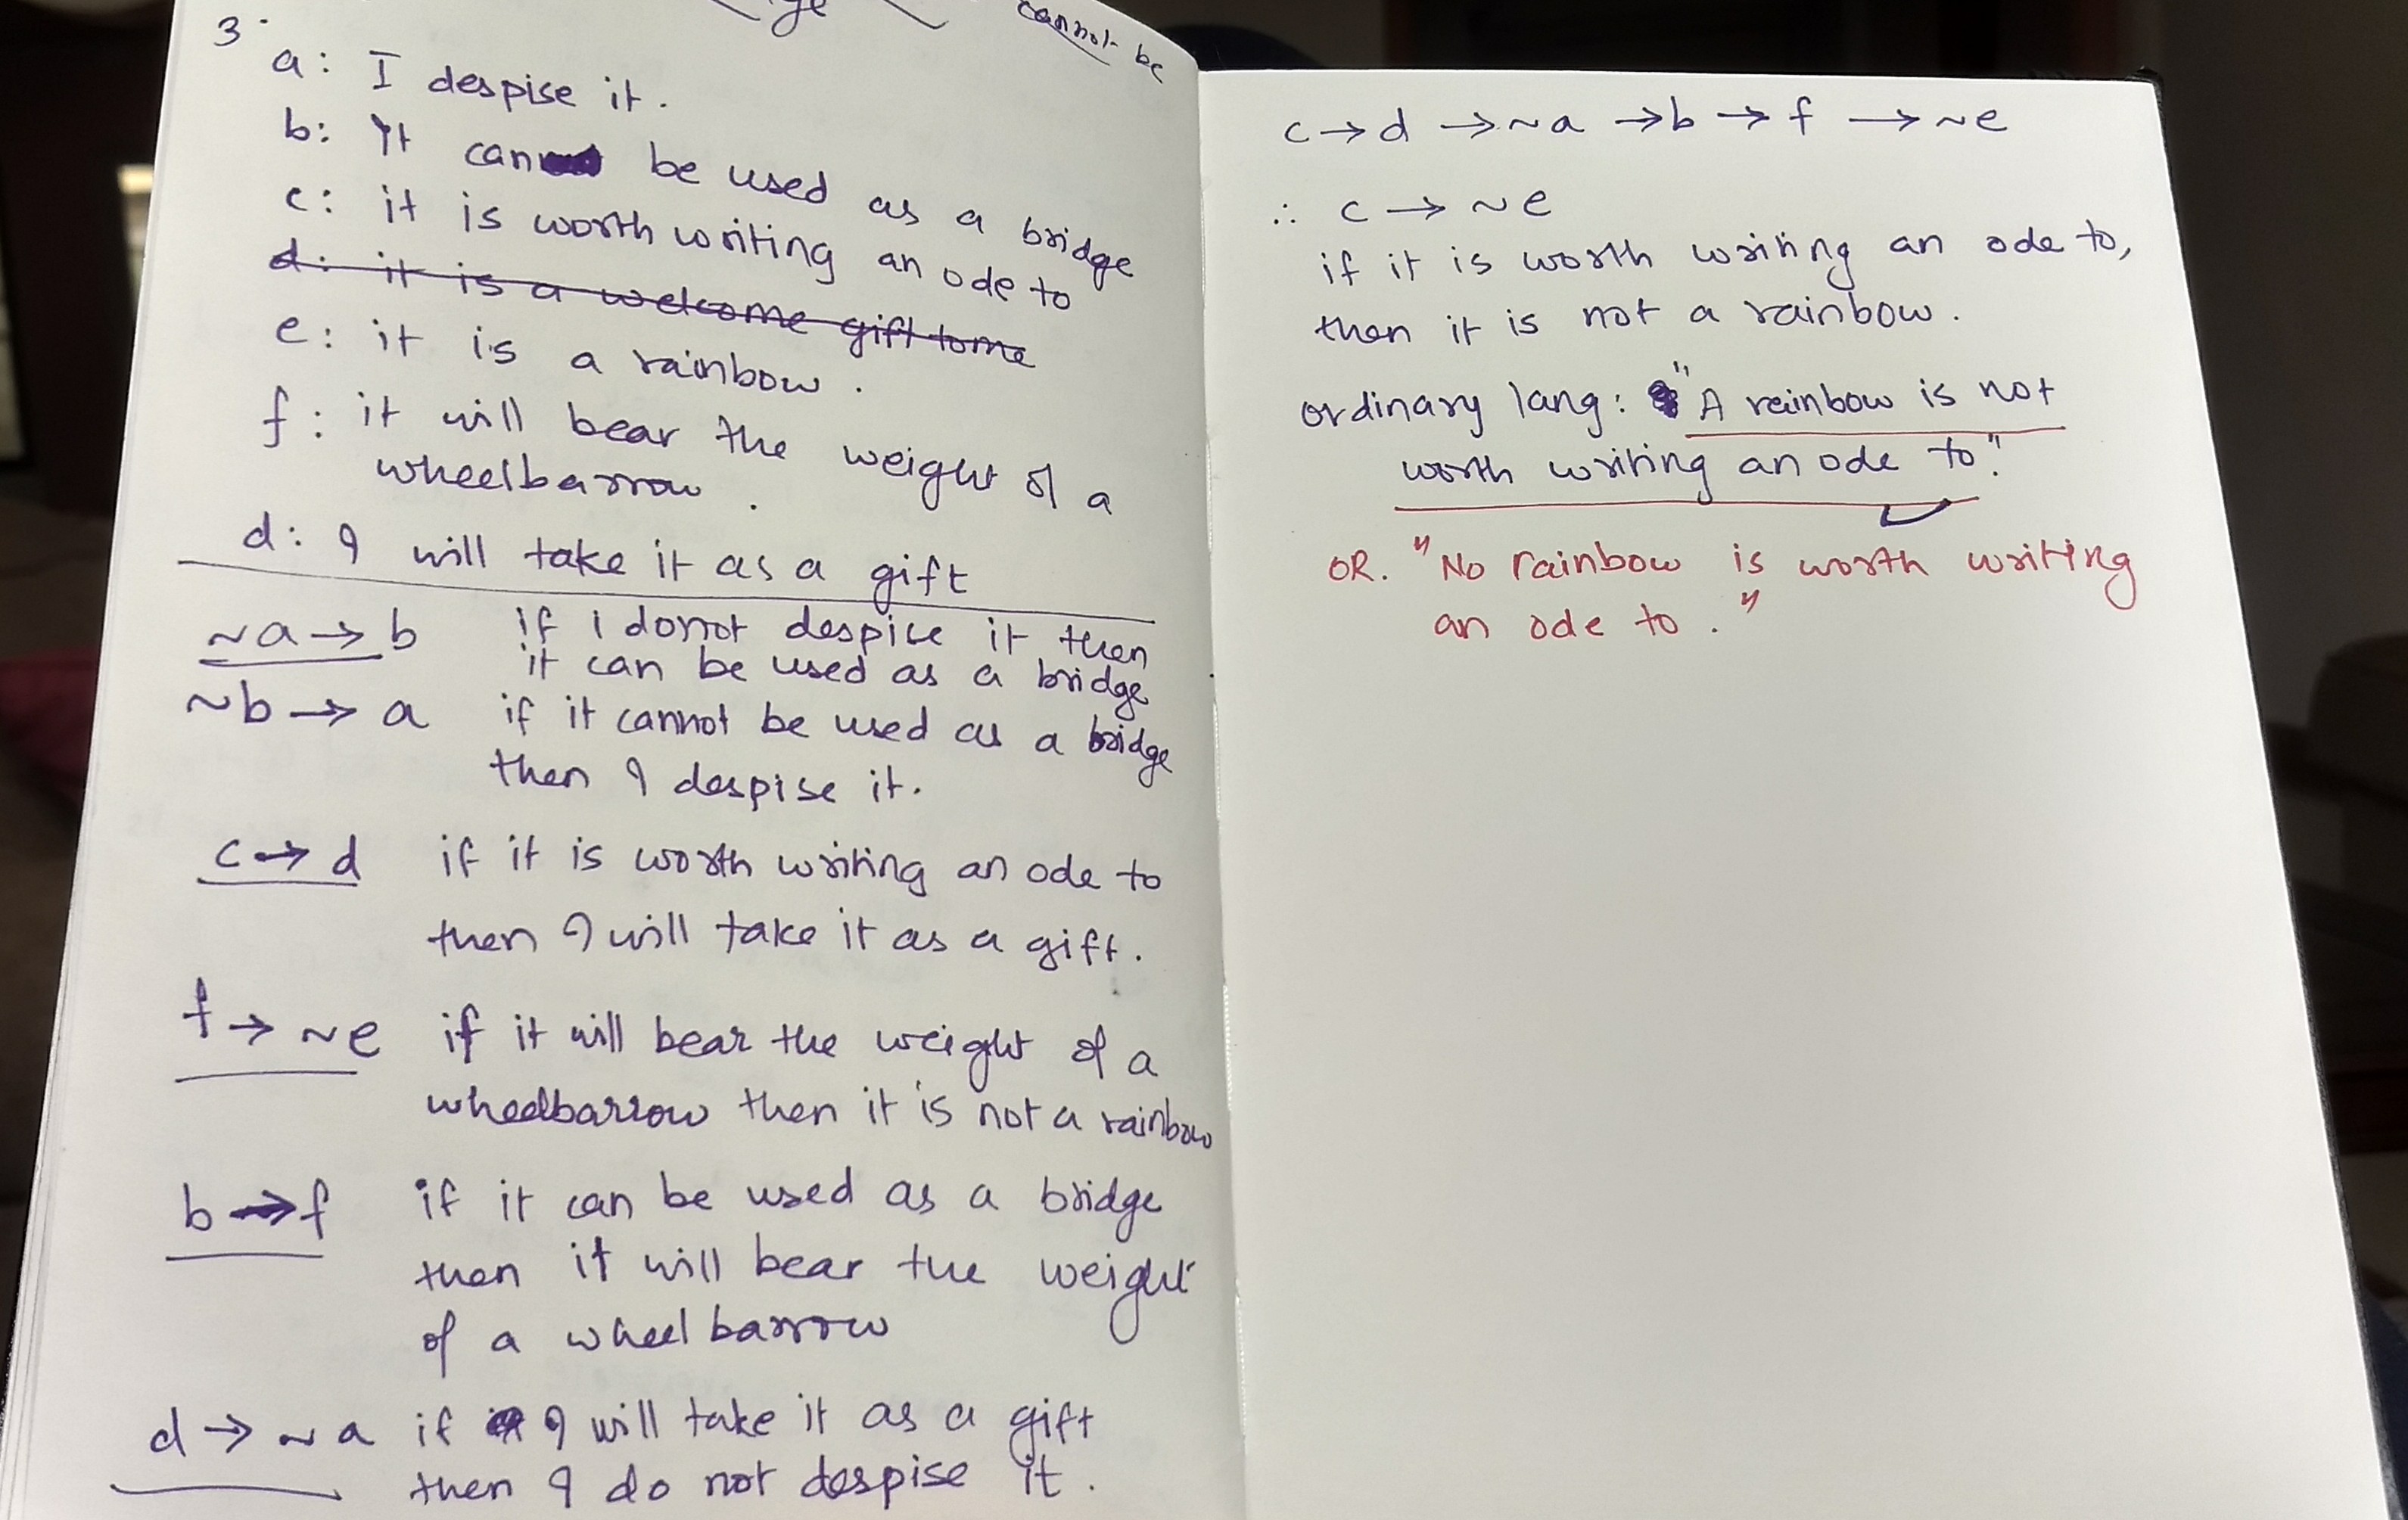 cannot be
3.
a: I despise it.
b: It can be used as a bridge
c: it is worth writing an ode to
d: it is a welcome gift to me
e: it is a rainbow.
f: it will bear the weight of a
wheelbarrow.
d: I will take it as a gift
~a → b if I donot despise it then
it can be used as a bridge
~b → a if it cannot be used as a bridge
then I despise it.
c → d if it is worth writing an ode to
then I will take it as a gift.
f → ~e if it will bear the weight of a
wheelbarrow then it is not a rainbow
b → f if it can be used as a bridge
then it will bear the weight
of a wheel barrow
d → ~a if I will take it as a gift
then I do not despise it.
c → d → ~a → b → f → ~e
∴ c → ~e
if it is worth writing an ode to,
then it is not a rainbow.
ordinary lang: "A rainbow is not
worth writing an ode to."
OR. "No rainbow is worth writing
an ode to."